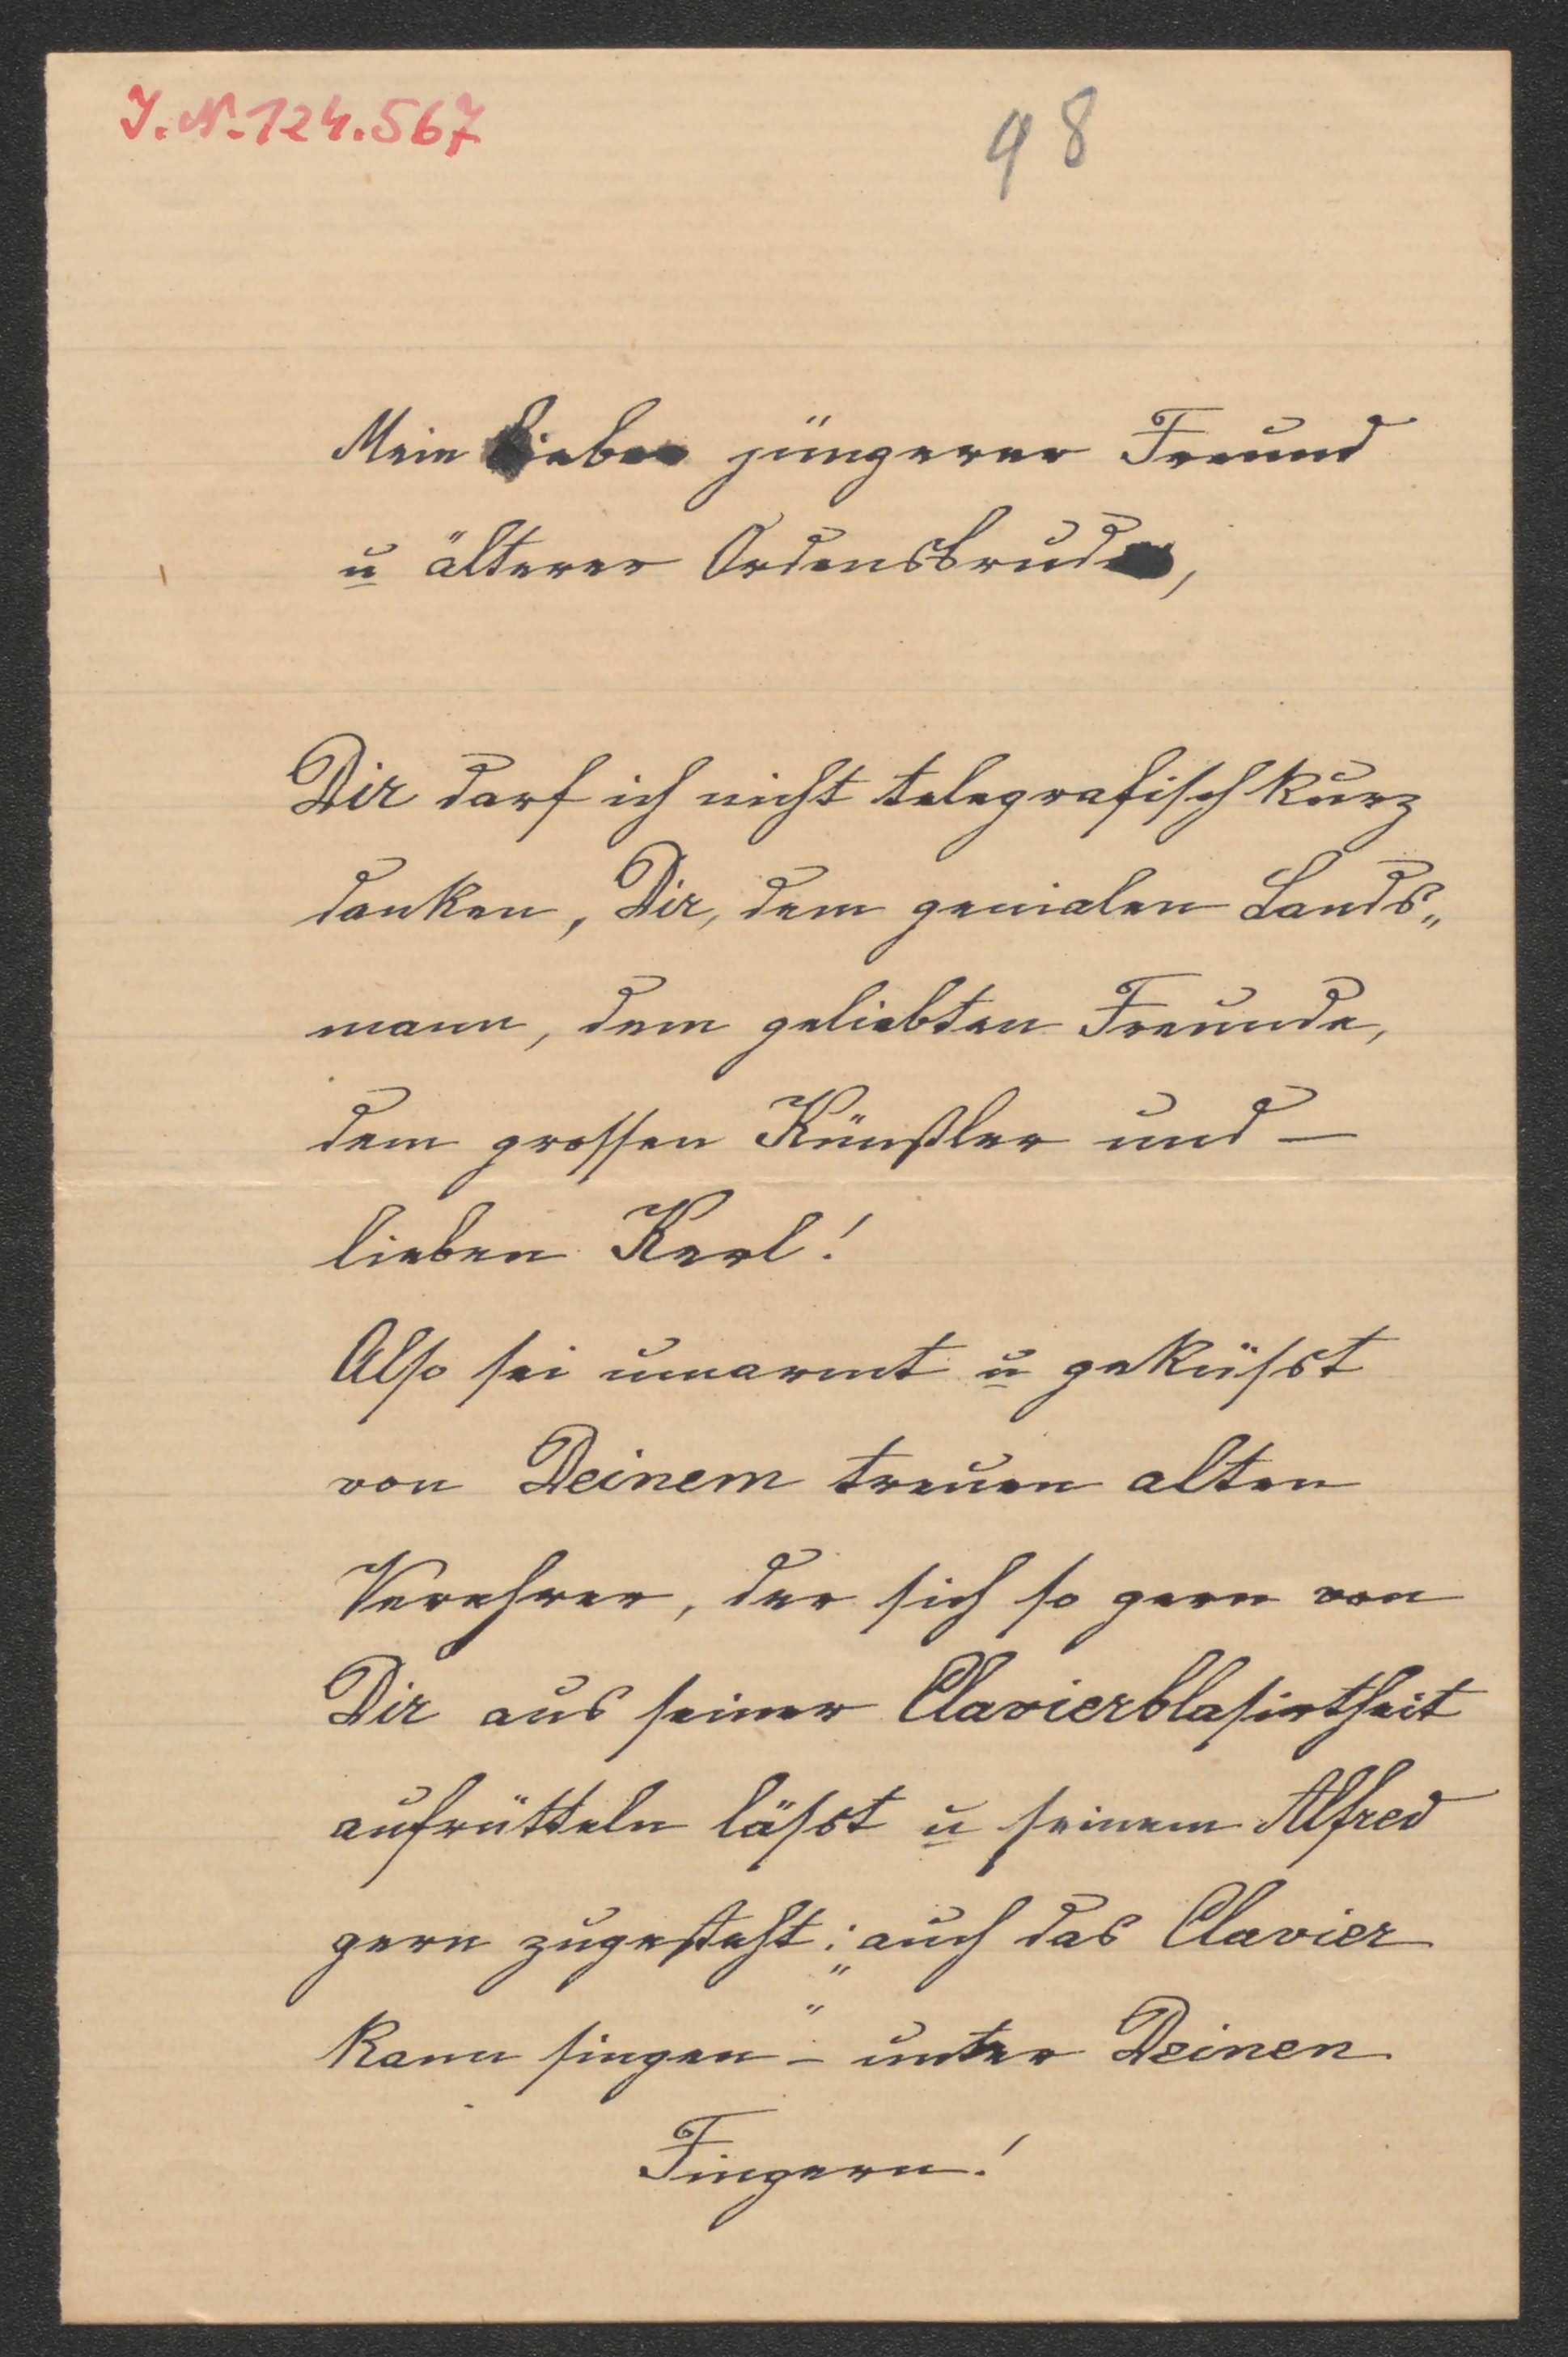 J.N. 124.567
98
Mein lieber jüngerer Freund
u älterer Ordensbruder,
Dir darf ich nicht telegrafisch kurz
danken, Dir, dem genialen Lands„
mann, dem geliebten Freunde,
dem grossen Künstler und —
lieben Kerl!
Also sei umarmt u geküsst
von Deinem treuen alten
Verehrer, der sich so gern von
Dir aus seiner Clavierblasirtheit
aufrütteln lässt u seinem Alfred
gern zugesteht: „auch das Clavier
kann singen“ – unter Deinen
Fingern!